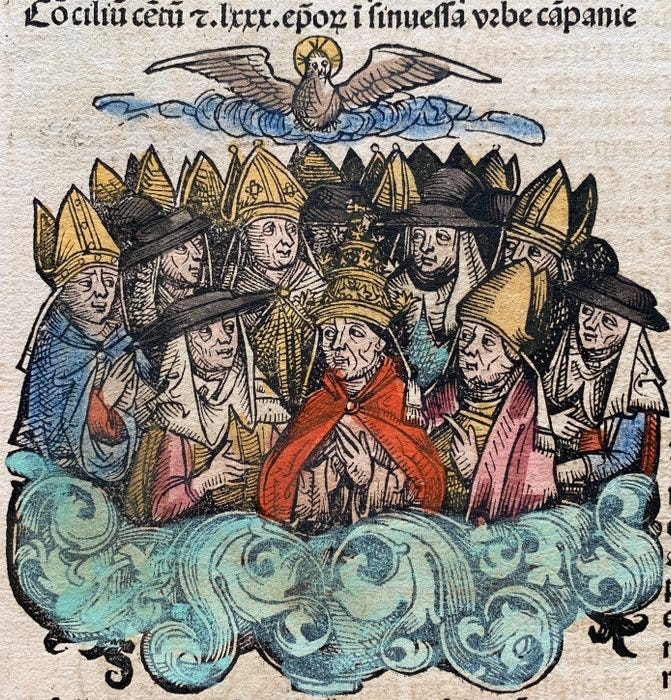 Cōciliū cētū ⁊.lxxx.ep̄oꝝ ī sinuessa vrbe cāpanie